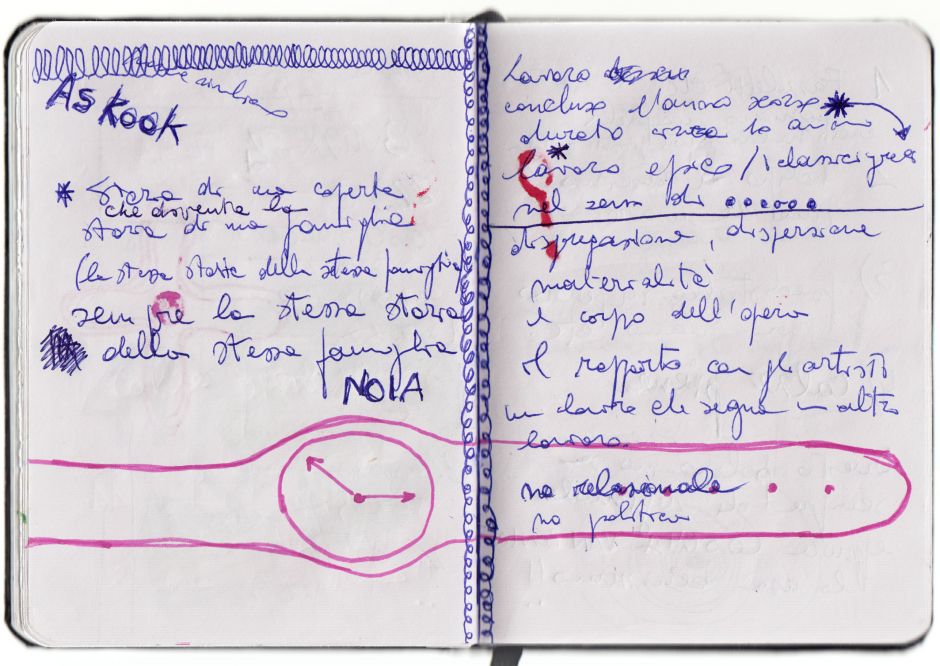 As Kook
* Storia di una coperta
che diventa la
storia di una famiglia
(le stesse storie della stessa famiglia)
sempre la stessa storia
della stessa famiglia
NOIA
Lavoro
concluso l'anno scorso *
durato circa 10 anni
* lavoro epico /
nel senso di
disgregazione, dispersione
materialità
e corpo dell'opera
il rapporto con gli artisti
un lavoro che segna un altro
lavoro
no relazionale
no politico